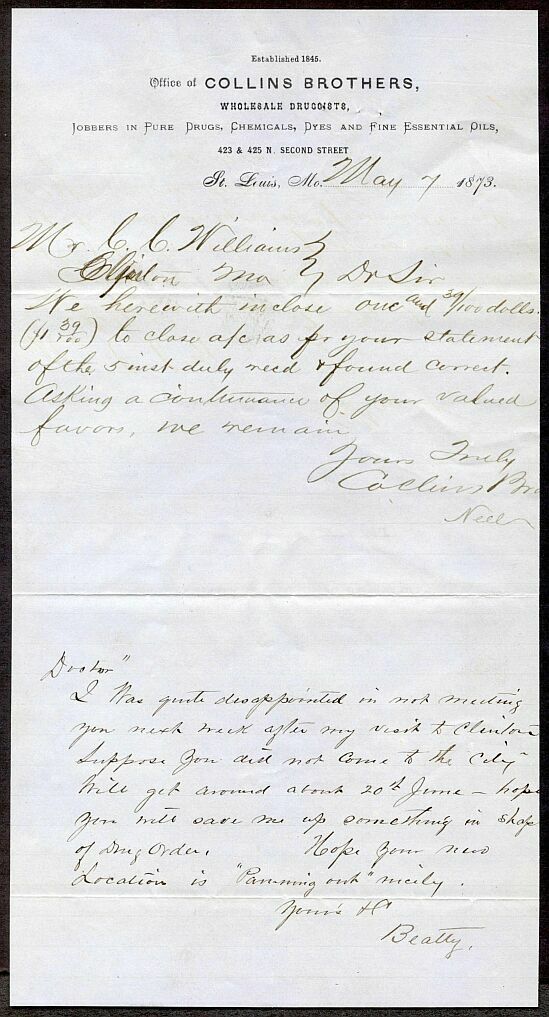 Established 1845.
Office of COLLINS BROTHERS,
WHOLESALE DRUGGISTS,
JOBBERS IN PURE DRUGS, CHEMICALS, DYES AND FINE ESSENTIAL OILS,
423 & 425 N. SECOND STREET
St. Louis, Mo. May 7 1873.
Mr. C. C. Williams
Clinton Mo Dr Sir
We herewith inclose one and 39/100 dolls.
($1 39/100) to close a/c as pr your statement
of the 5 inst duly recd & found correct.
Asking a continuance of your valued
favors, we remain
Yours Truly
Collins Bro
Doctor"
I Was quite disappointed in not meeting
you next week after my visit to Clinton
Suppose you did not come to the City
Will get around about 20th June - hope
you will save me up something in shap
of Drug Order. Hope your new
Location is "Panning out" nicely.
Yours &c
Beatty.